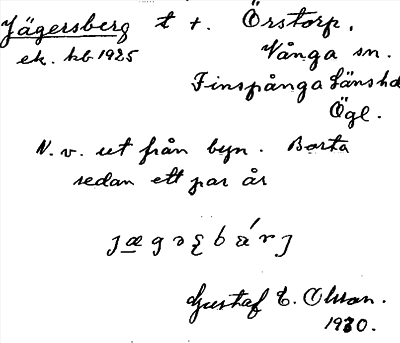 Jägersberg t +. Örstorp.
ek. hb 1925 Vånga sn.
Finspånga länshd
Ögl.
N. v. ut från byn. Borta
sedan ett par år
Gustaf E. Olsson.
1930.